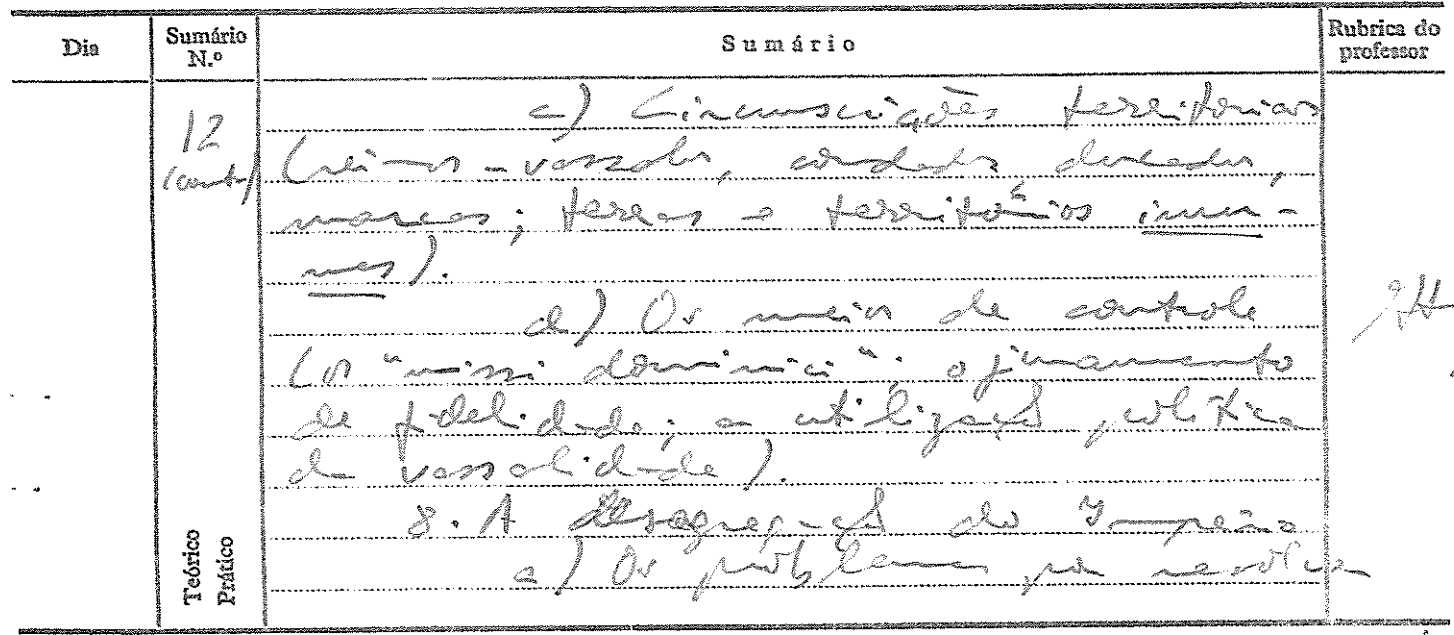 Dia
Sumário N.º
Sumário
Rubrica do professor
12
(cont.)
c) Circunscrições territoriais
(reinos-vassalos, condados, ducados,
marcas; terras e territórios imu-
nes).
d) Os meios de controle
(os "missi dominici"; o juramento
de fidelidade; a utilização política
da vassalidade).
8. A desagregação do Império
a) Os problemas por resolver
Teórico
Prático